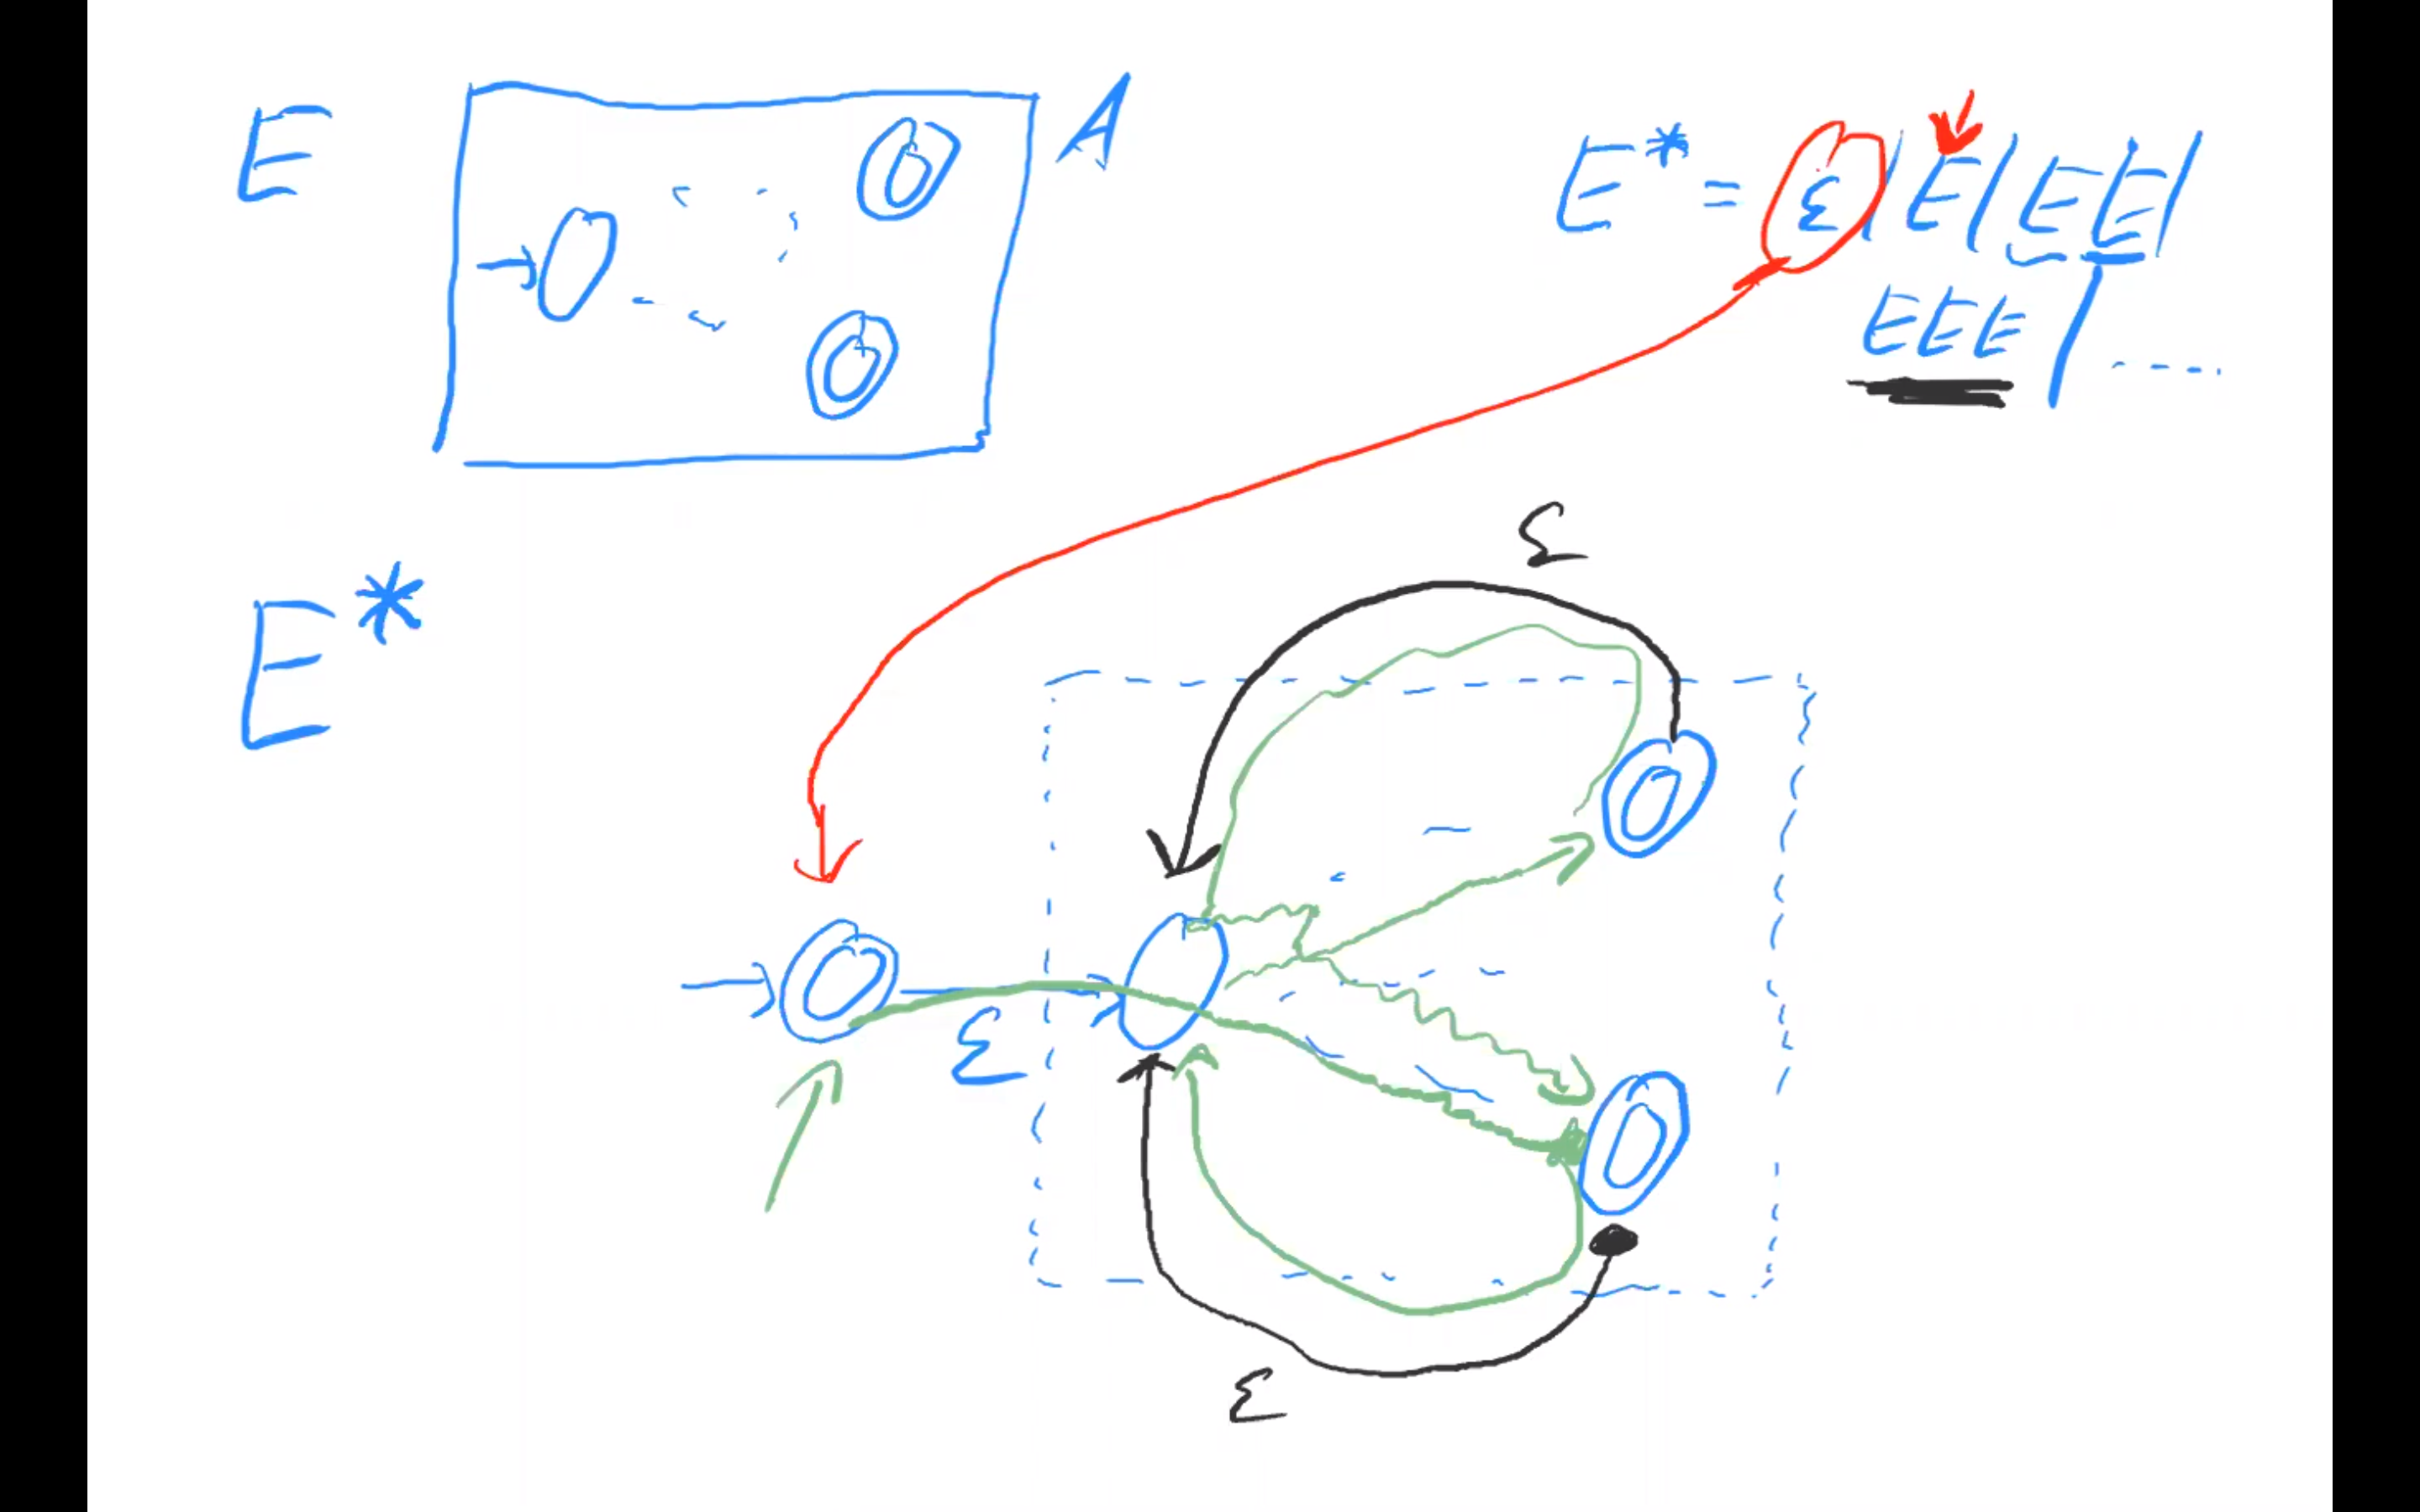 E
A
E* = ε / E / EE /
EEE / ....
E*
ε
ε
ε